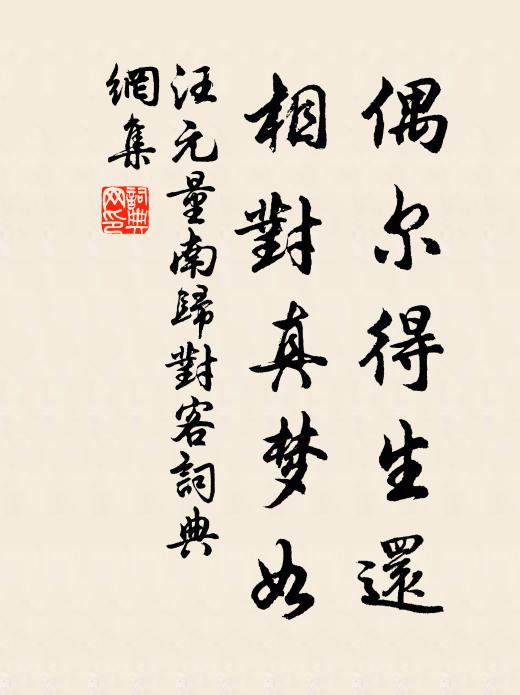 偶尔得生還
相對真梦如
汪元量南歸對客詞典
網集
詞典網印